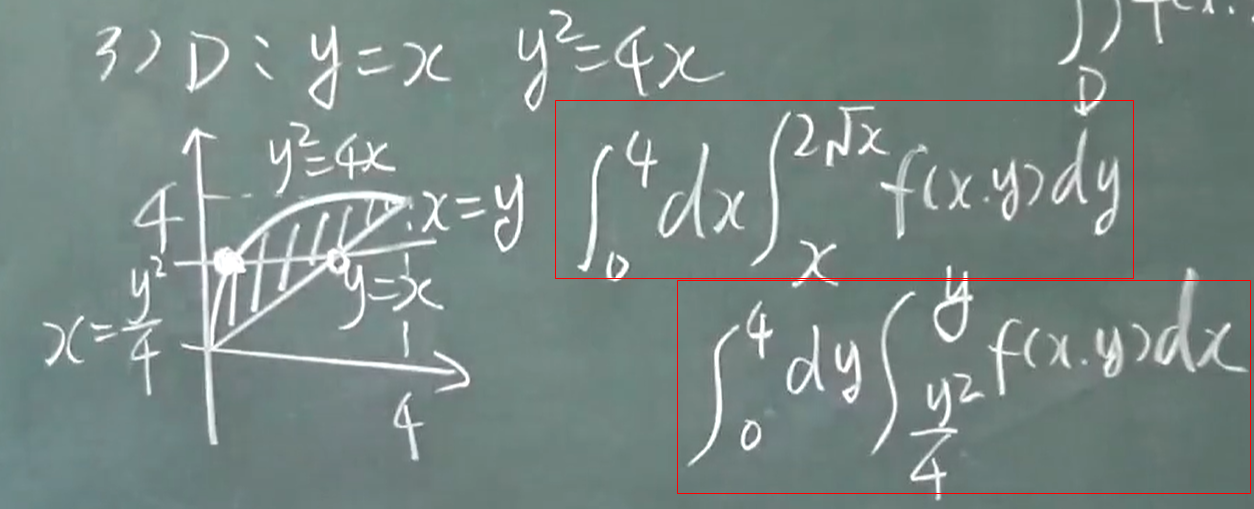 3) D: y=x y²=4x
∬ f(x.
D
y²=4x
4
x=y
y=x
x=y²/4
4
∫₀⁴dx∫ₓ^{2√x} f(x.y)dy
∫₀⁴dy∫_{y²/4}^{y} f(x.y)dx